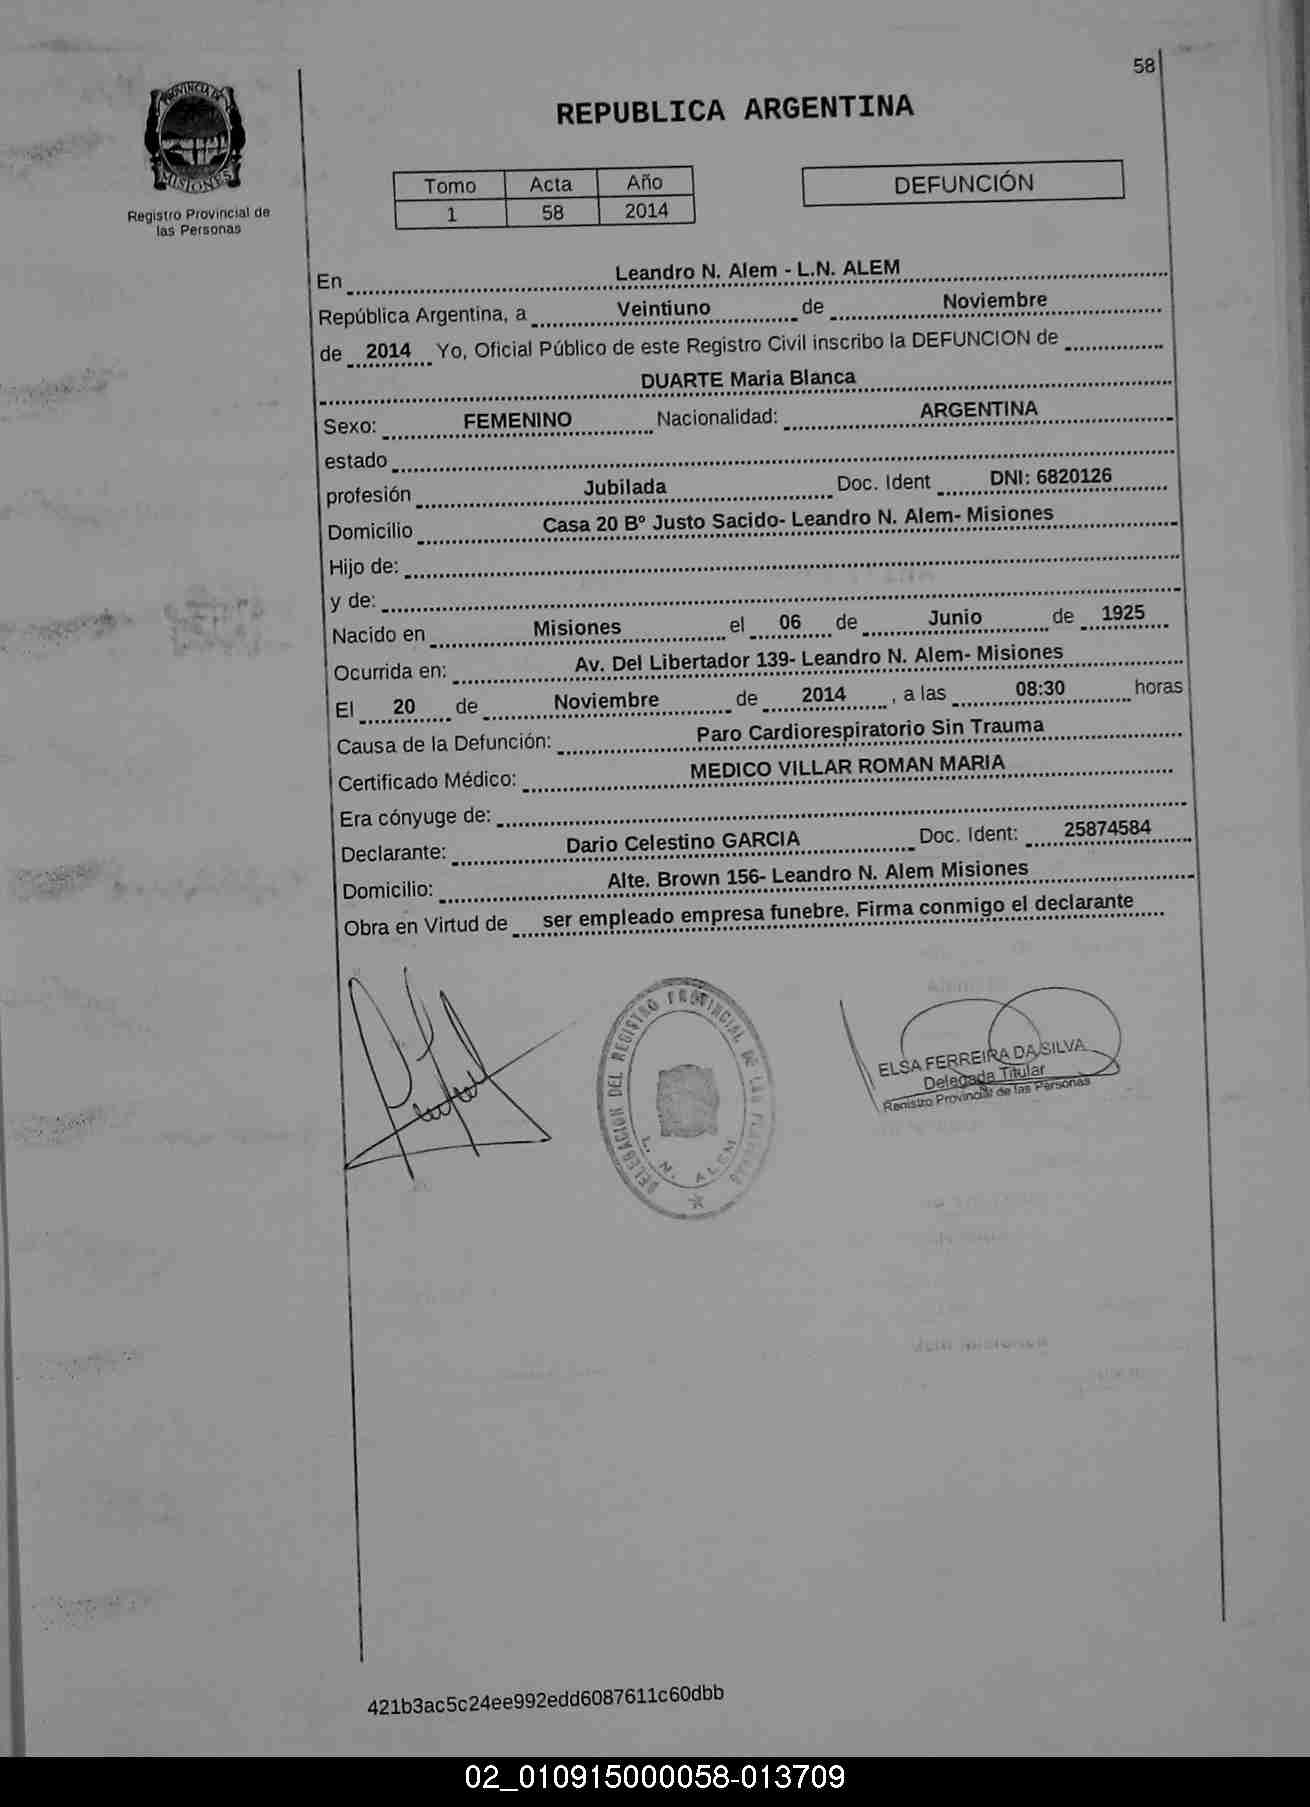 58
PROVINCIA DE
MISIONES
Registro Provincial de
las Personas
REPUBLICA ARGENTINA
Tomo Acta Año
1 58 2014
DEFUNCIÓN
En Leandro N. Alem - L.N. ALEM
República Argentina, a Veintiuno de Noviembre
de 2014 Yo, Oficial Público de este Registro Civil inscribo la DEFUNCION de
DUARTE Maria Blanca
Sexo: FEMENINO Nacionalidad: ARGENTINA
estado
profesión Jubilada Doc. Ident DNI: 6820126
Domicilio Casa 20 Bº Justo Sacido- Leandro N. Alem- Misiones
Hijo de:
y de:
Nacido en Misiones el 06 de Junio de 1925
Ocurrida en: Av. Del Libertador 139- Leandro N. Alem- Misiones
El 20 de Noviembre de 2014 , a las 08:30 horas
Causa de la Defunción: Paro Cardiorespiratorio Sin Trauma
Certificado Médico: MEDICO VILLAR ROMAN MARIA
Era cónyuge de:
Declarante: Dario Celestino GARCIA Doc. Ident: 25874584
Domicilio: Alte. Brown 156- Leandro N. Alem Misiones
Obra en Virtud de ser empleado empresa funebre. Firma conmigo el declarante
DELEGACION DEL REGISTRO PROVINCIAL DE LAS PERSONAS
L. N. ALEM
ELSA FERREIRA DA SILVA
Delegada Titular
Registro Provincial de las Personas
421b3ac5c24ee992edd6087611c60dbb
02_010915000058-013709